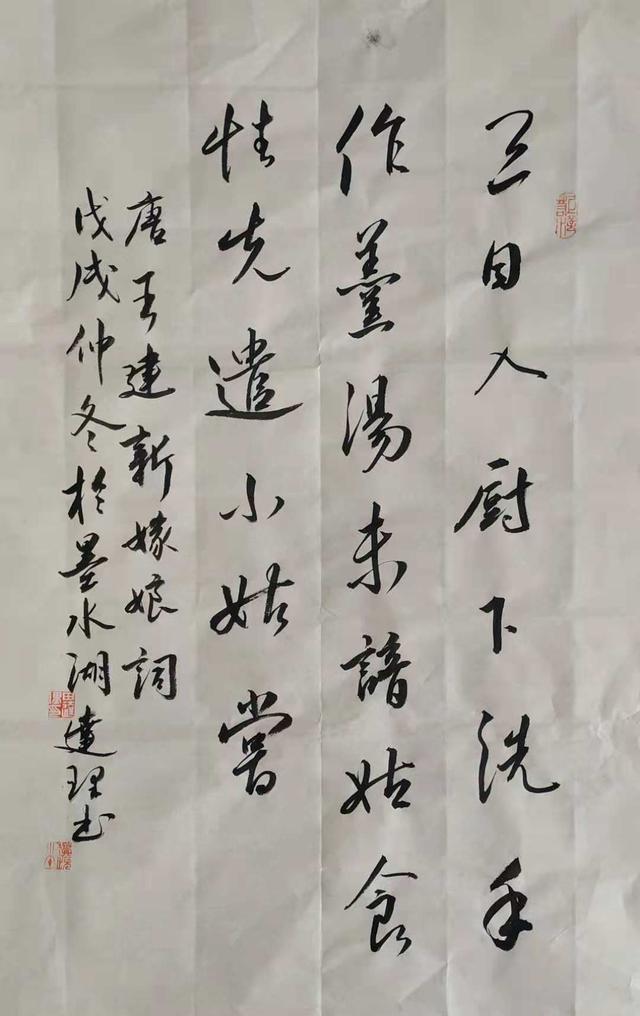 三日入厨下洗手
作羹湯未諳姑食
性先遣小姑嘗
唐王建新嫁娘詞
戊戌仲冬於墨水湖達理书